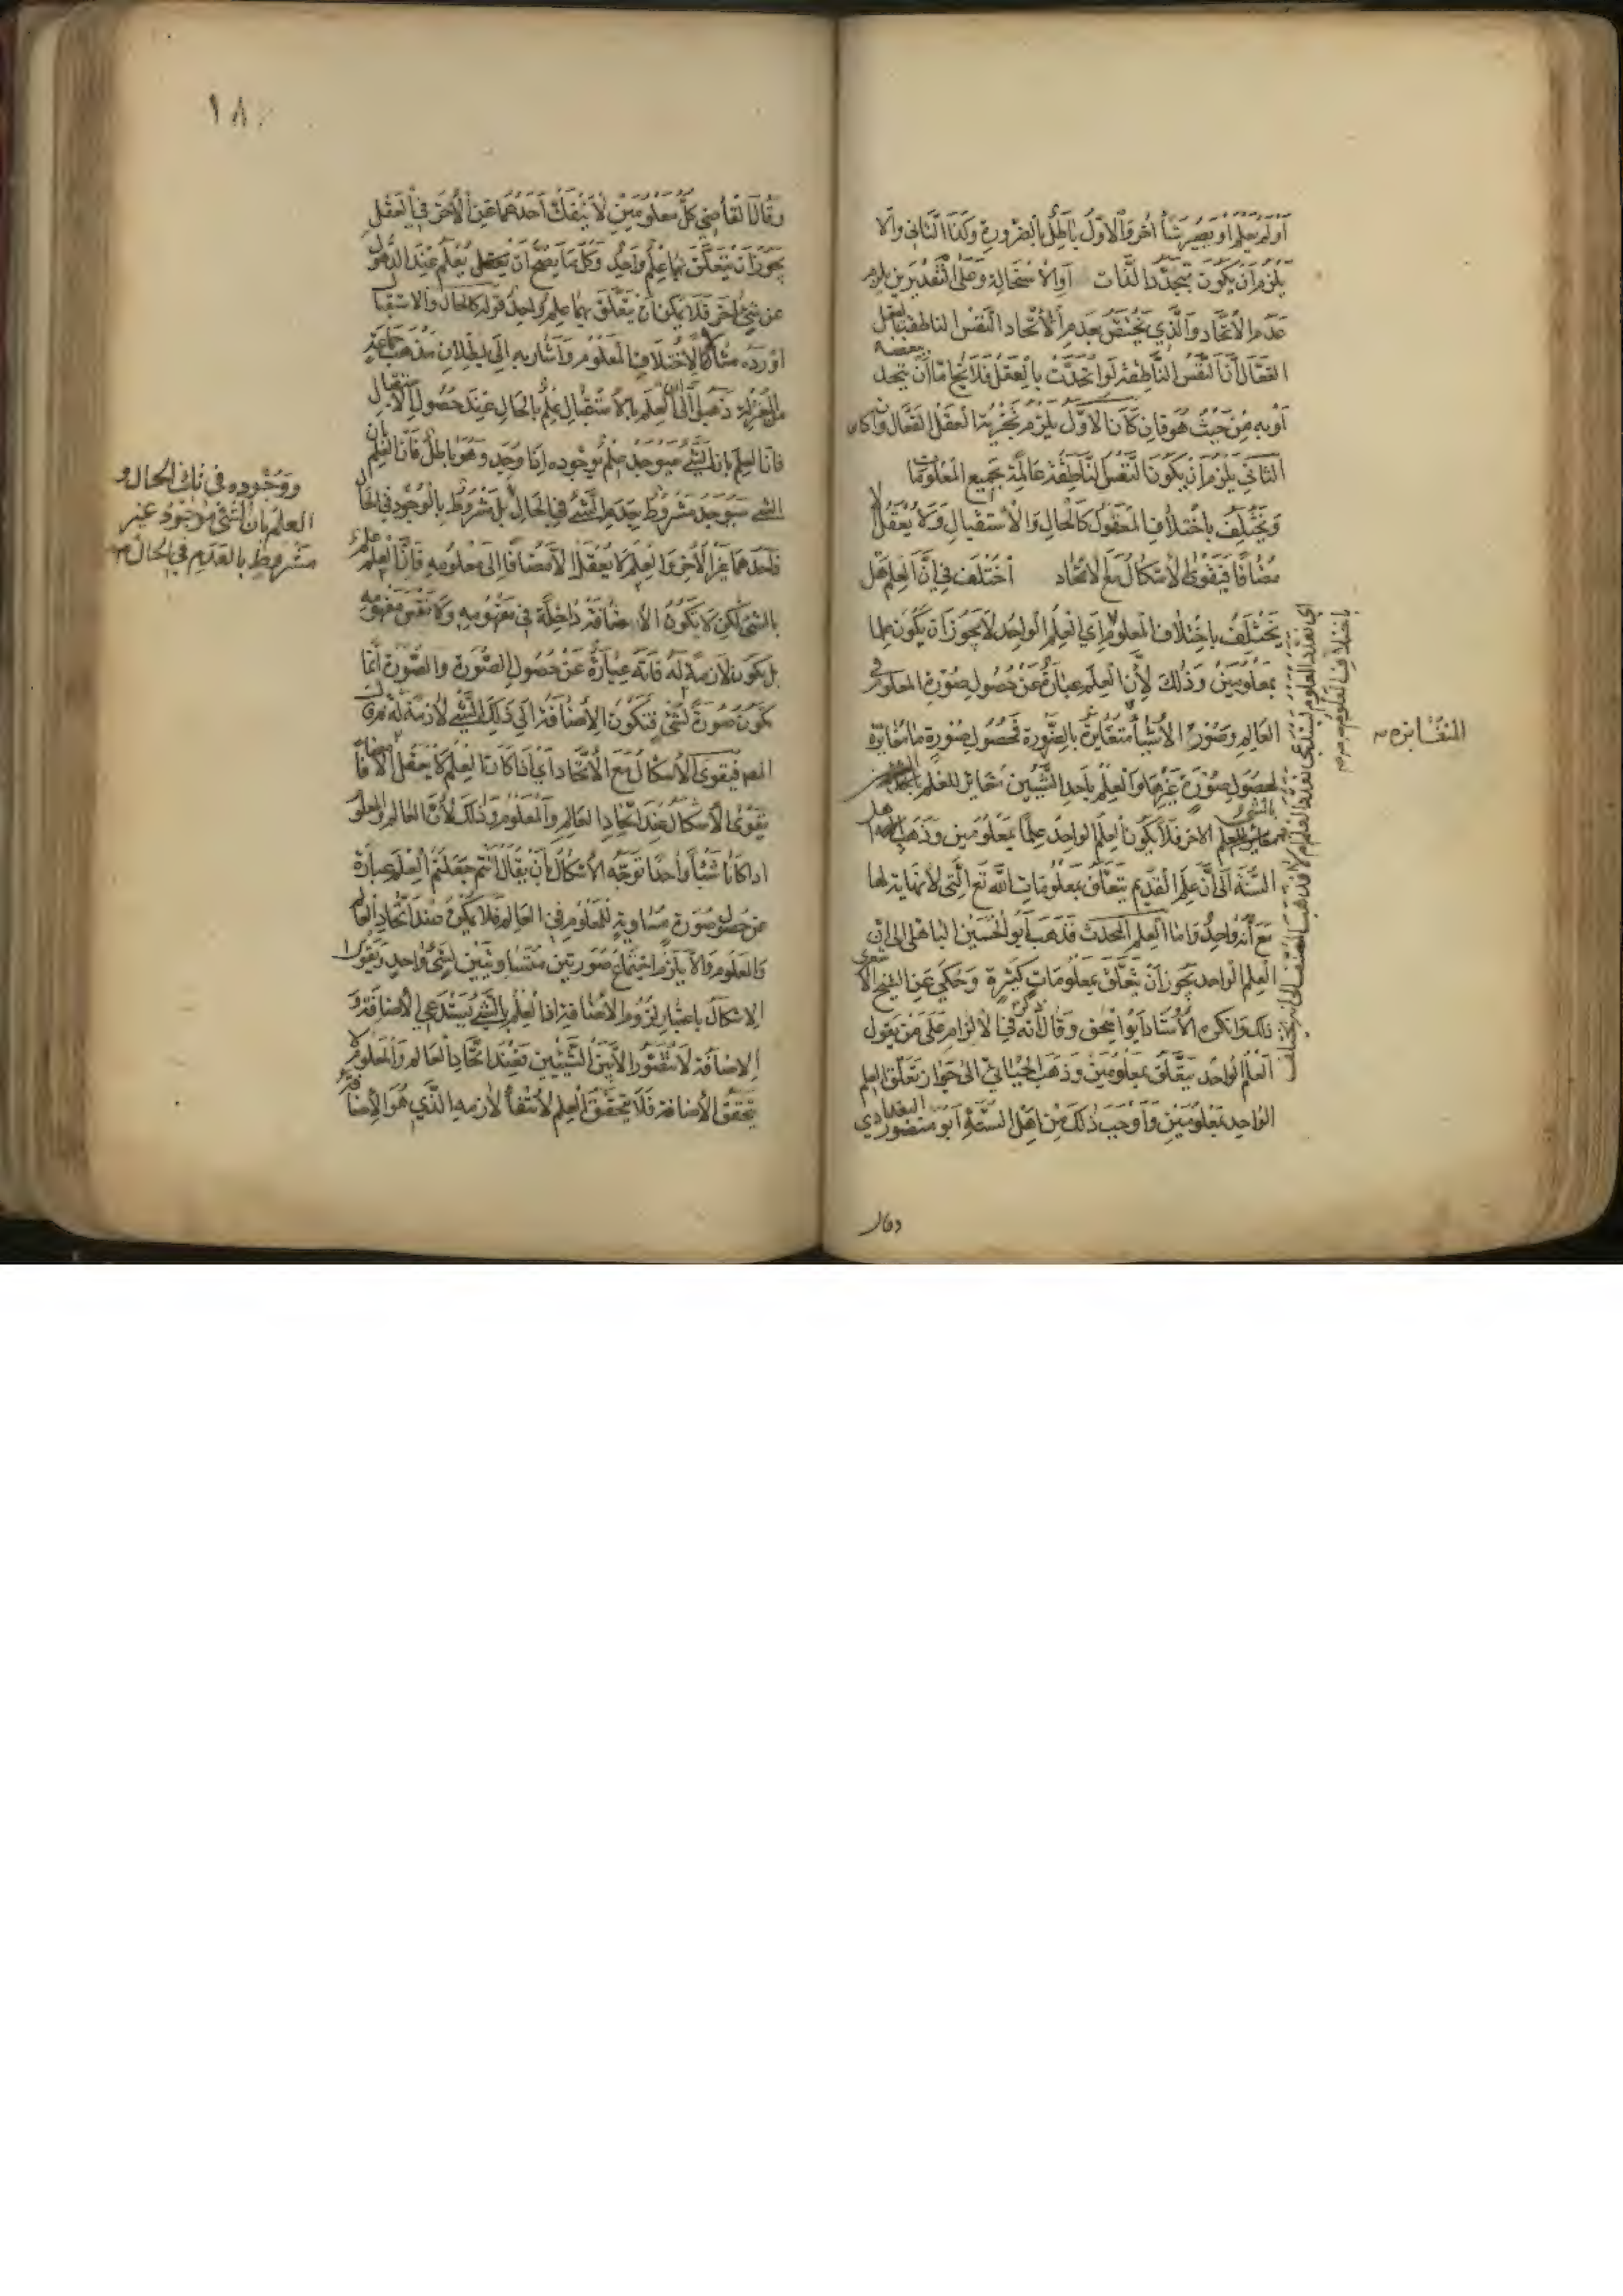 أو لم يعلم أو يصير شيأ آخر والأول باطل بالضرورة وكذا الثاني وإلا
يلزم أن يكون بتجدد الذات أو الاستحالة وعلى التقديرين يلزم
عدم الاتحاد والذي يختص بعدم الاتحاد النفس الناطقة بالعقل
الفعال أن النفس الناطقة لو اتحدت بالعقل فلا يخ اما أن يتحد ببعضه
أو به من حيث هو فإن كان الأول يلزم تجزية العقل الفعال وإن كان
الثاني يلزم أن يكون النفس الناطقة عالمة بجميع المعلومات
ويختلف باختلاف المعقول كالحال والاستقبال ولا يعقل إلا
مضافا فيقوى الإشكال مع الاتحاد اختلف في أن العلم هل
يختلف باختلاف المعلوم أي العلم الواحد لا يجوز أن يكون علما
بمعلومين وذلك لأن العلم عبارة عن حصول صورة المعلوم في
العالم وصور الأشيأ متغايرة بالصورة فحصول صورة ما مغايرة
لحصول صورة غيرها والعلم بأحد الشيئين مغاير للعلم
بالشيء الآخر فلا يكون العلم الواحد علما بمعلومين وذهب أهل
السنة إلى أن علم القديم يتعلق بمعلومات الله تع التي لا نهاية لها
مع أنه واحد واما العلم المحدث فذهب أبو الحسين الباهلي إلى ان
العلم الواحد يجوز أن يتعلق بمعلومات كثيرة وحكي عن الشيخ الأشعري
ذلك وانكره الأستاد أبو اسحق وقال أنه ذكره في الالزام على من يقول
العلم الواحد يتعلق بمعلومين وذهب الجبائي إلى جواز تعلق العلم
الواحد بمعلومين وأوجب ذلك من أهل السنة أبو منصور البغدادي
وقال
أي تعدد المعلوم يستدعي تعدد العلم أم لا فذهب المصنف إلى أنه يختلف
باختلاف المعلوم
المتغايرة
١٨
وقال القاضي كل معلومين لا ينفك أحدهما عن الآخر في العقل
يجوز أن يتعلق بهما علم واحد وكل ما يصح أن يعقل يعلم عند الذهول
عن شيء آخر فلا يمكن أن يتعلق بهما علم واحد قوله كالحال والاستقبال
أورده مثالا لاختلاف المعلوم وأشار به إلى بطلان مذهب جماعة
من المعتزلة ذهبوا إلى أن العلم بالاستقبال علم بالحال عند حصول الاستقبال
فإن العلم بأن الشيء سيوجد علم بوجوده إذا وجد وهو باطل فان العلم بأن
الشيء سيوجد مشروط بعدم الشيء في الحال بل مشروط بالوجود في الحال
فأحدهما غير الآخر والعلم لا يعقل إلا مضافا إلى معلومه فإن العلم علم
بالشيء لكن لا يكون الاضافة داخلة في مفهومه ولا نفس مفهومه
بل يكون لازمة له فانه عبارة عن حصول الصورة والصورة إنما
يكون صورة لشيء فتكون الإضافة إلى ذلك الشيء لازمة له
المص فيقوى الأشكال مع الاتحاد أي اذا كان العلم لا يعقل إلا مضافا
يقوى الأشكال عند اتحاد العالم والمعلوم وذلك لأن العالم والمعلوم
اذا كانا شيئا واحدا توجه الأشكال بأن يقال أنتم جعلتم العلم عبارة
عن حصول صورة مساوية للمعلوم في العالم فلا يكون عند اتحاد العالم
والمعلوم والا يلزم اجتماع صورتين متساويتين لشيء واحد ويقوى
الاشكال باعتبار لزوم الاضافة اذ العلم بالشيء يستدعي الأضافة و
الاضافة لا تتصور إلا بين الشيئين فعند اتحاد العالم والمعلوم لا
يتحقق الأضافة فلا يتحقق العلم لأنتفأ لازمه الذي هو الإضافة
ووجوده في ثاني الحال و
العلم بان الشيء موجود غير
مشروط بالعدم في الحال